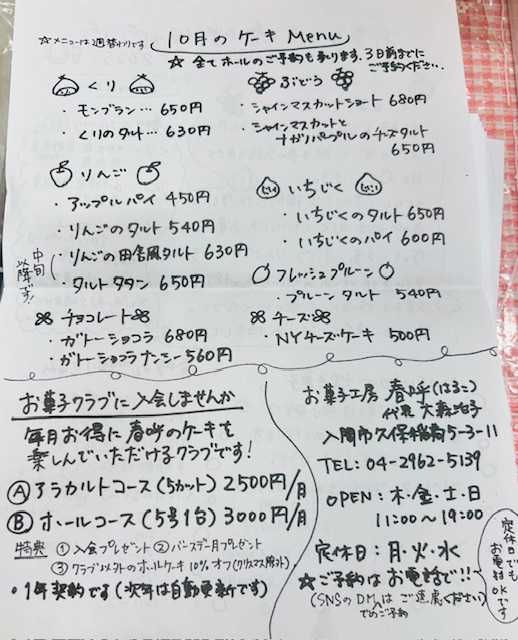 ☆メニューは2週替わりです
10月のケーキMenu
☆全てホールのご予約も承ります。3日前までに
ご予約ください。
くり
・モンブラン… 650円
・くりのタルト… 630円
ぶどう
・シャインマスカットショート 680円
・シャインマスカットと
ナガノパープルのチーズタルト
650円
りんご
・アップルパイ 450円
・りんごのタルト 540円
・りんごの田舎風タルト 630円
・タルトタタン 650円
中旬
以降です!
いちじく
・いちじくのタルト 650円
・いちじくのパイ 600円
フレッシュプルーン
・プルーンタルト 540円
チョコレート
・ガトーショコラ 680円
・ガトーショコラナンシー 560円
チーズ
・NYチーズケーキ 500円
お菓子クラブに入会しませんか
毎月お得に春呼のケーキを
楽しんでいただけるクラブです!
Ⓐ アラカルトコース(5カット) 2500円/月
Ⓑ ホールコース(5号1台) 3000円/月
特典 ①入会プレゼント ②バースデー月プレゼント
③クラブ以外のホールケーキ10%オフ(クリスマス除外)
・1年契約です(次年は自動更新です)
お菓子工房 春呼(はるこ)
代表 大森
入間市久保稲荷5-3-11
TEL: 04-2962-5139
OPEN: 木・金・土・日
11:00〜19:00
定休日: 月・火・水
☆ご予約はお電話で!!
(SNSのDMはご遠慮ください)
でのご予約
定休日でも
お電話
OKです